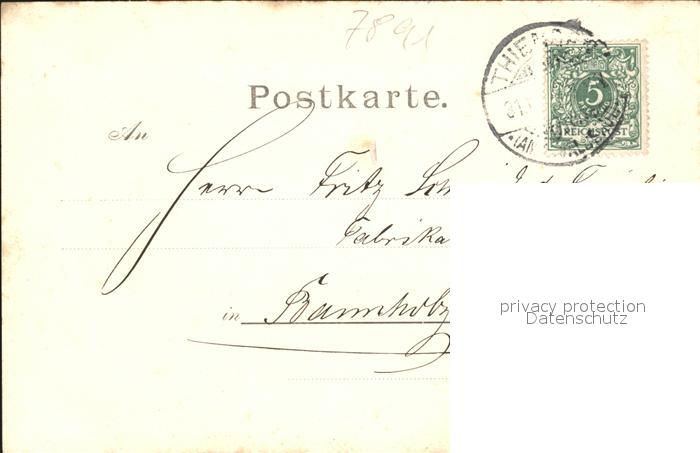 7891
Postkarte.
5
REICHSPOST
An
Herrn Fritz
Fabrika
in Bannholz
privacy protection
Datenschutz